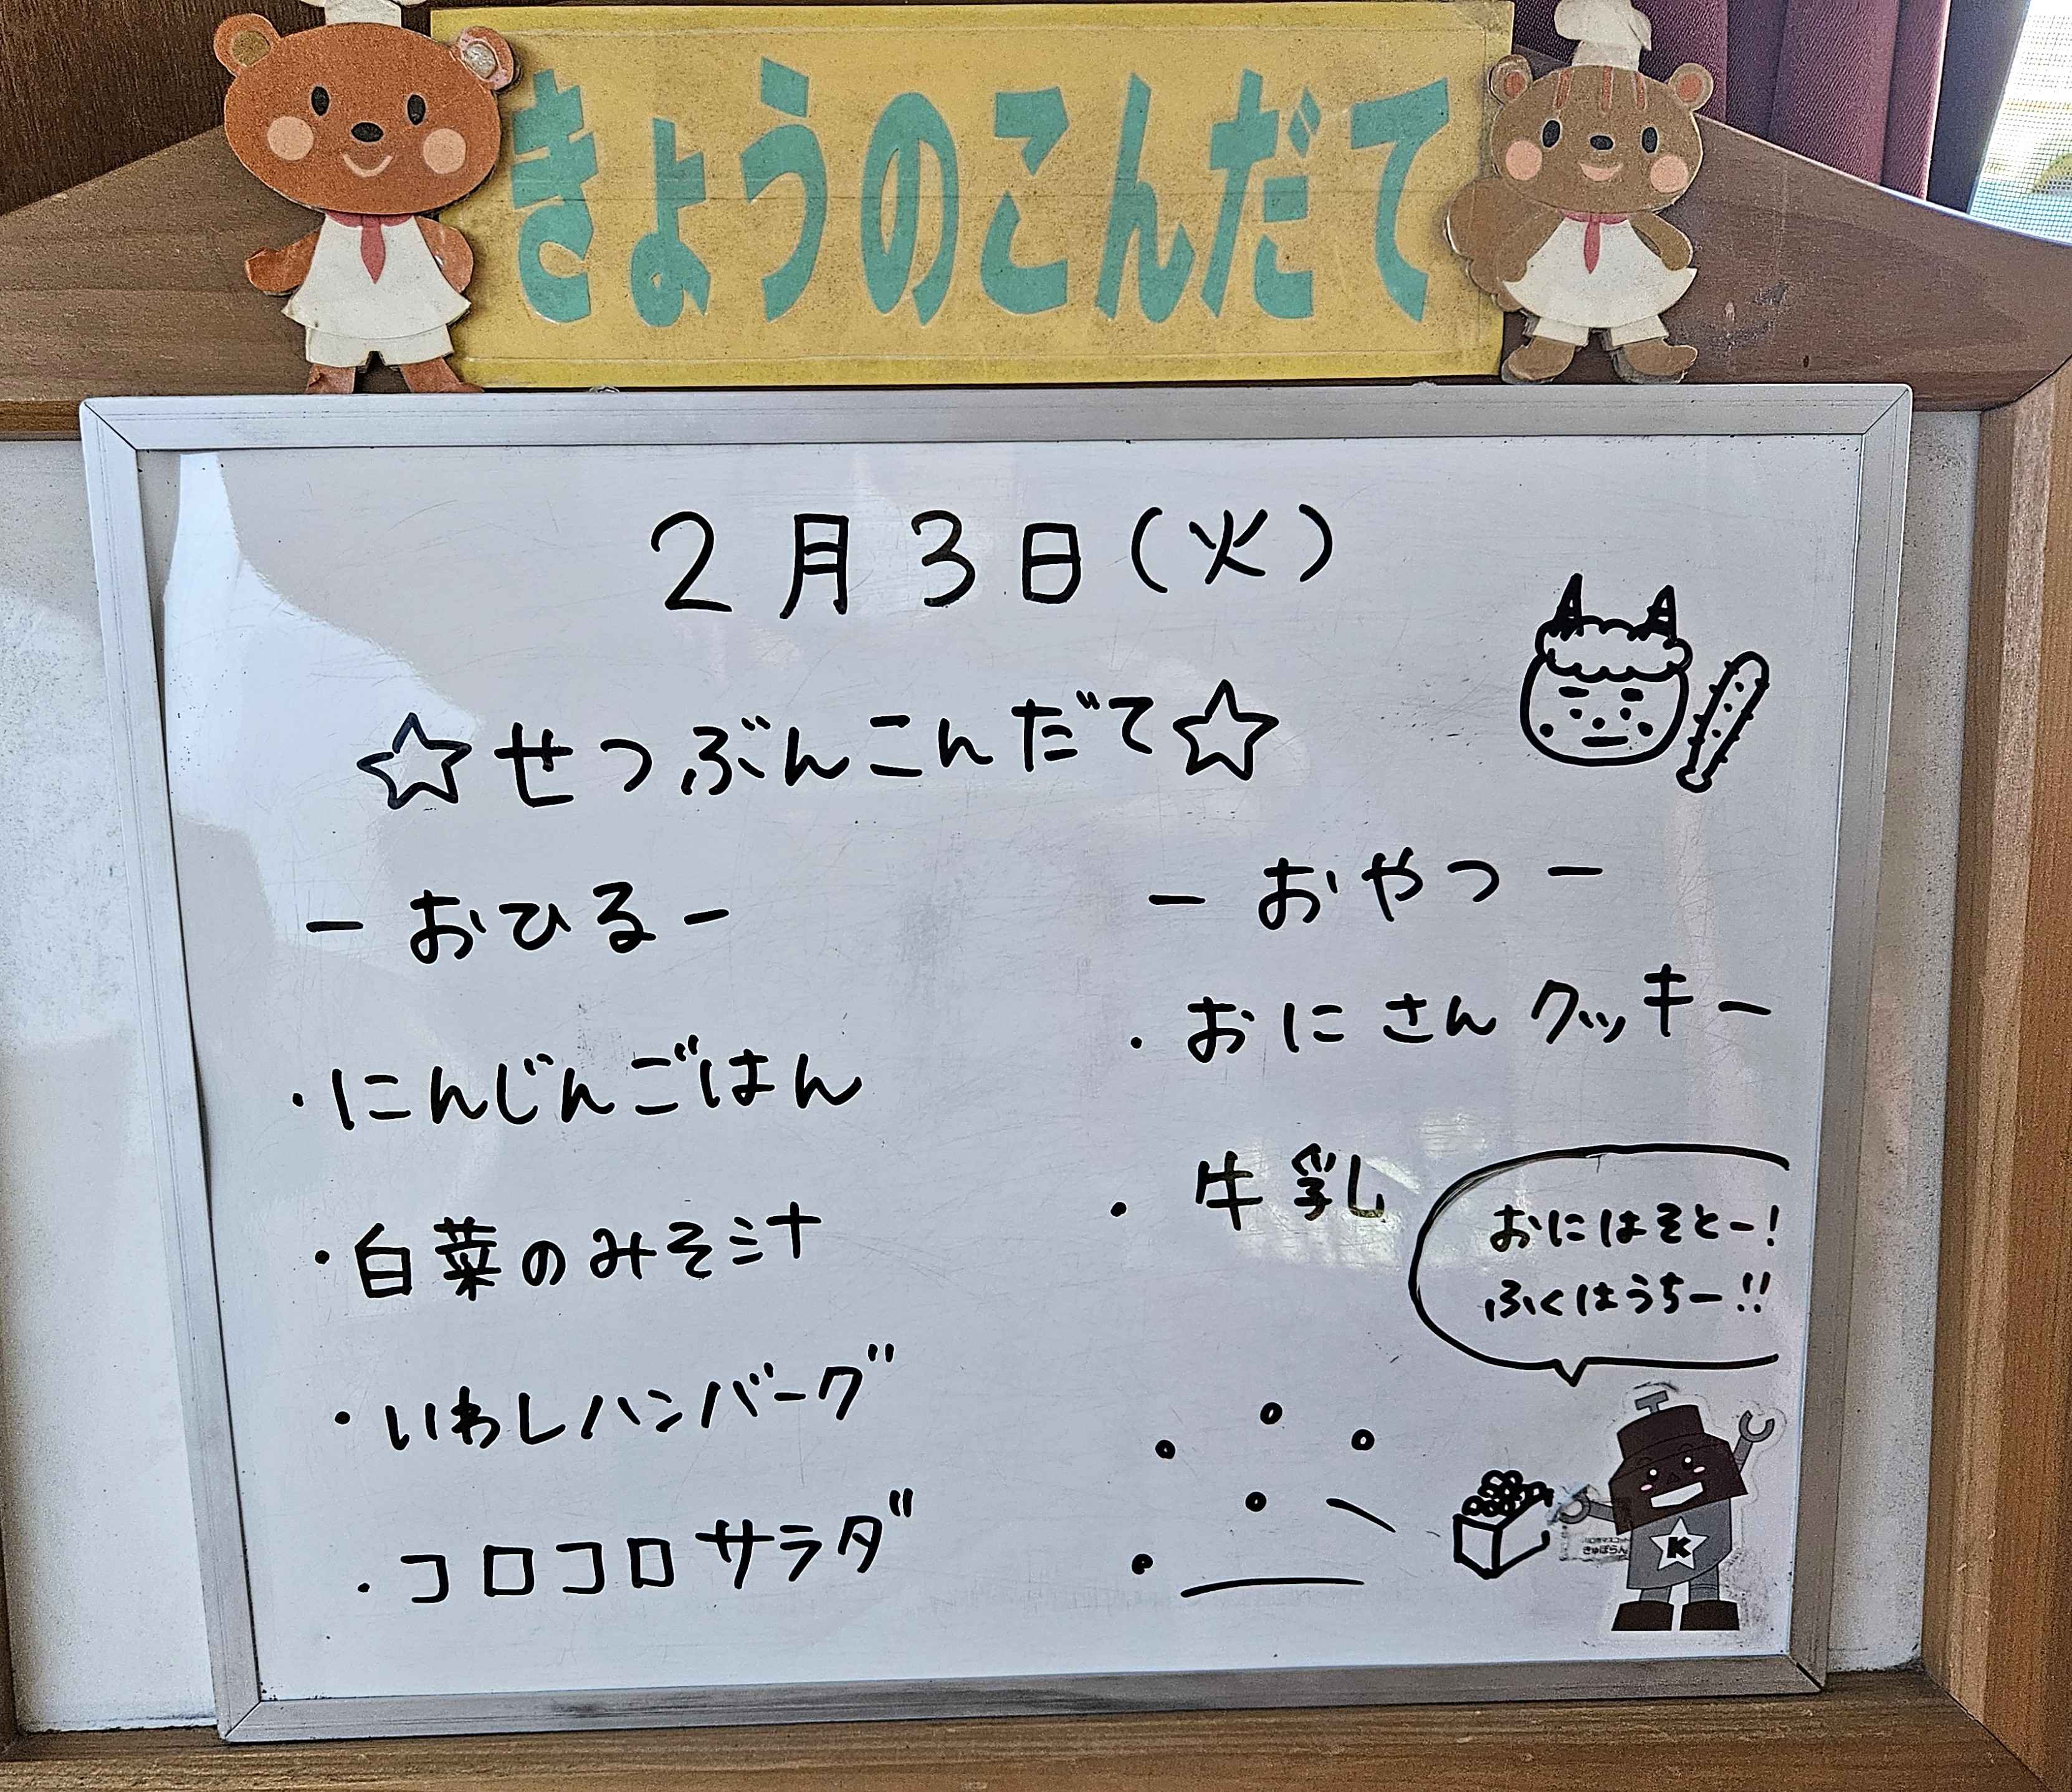 きょうのこんだて
2月3日(火)
☆せつぶんこんだて☆
ーおひるー
・にんじんごはん
・白菜のみそ汁
・いわしハンバーグ
・コロコロサラダ
ーおやつー
・おにさんクッキー
・牛乳
おにはそとー!
ふくはうちー!!
K
きゅぽらん